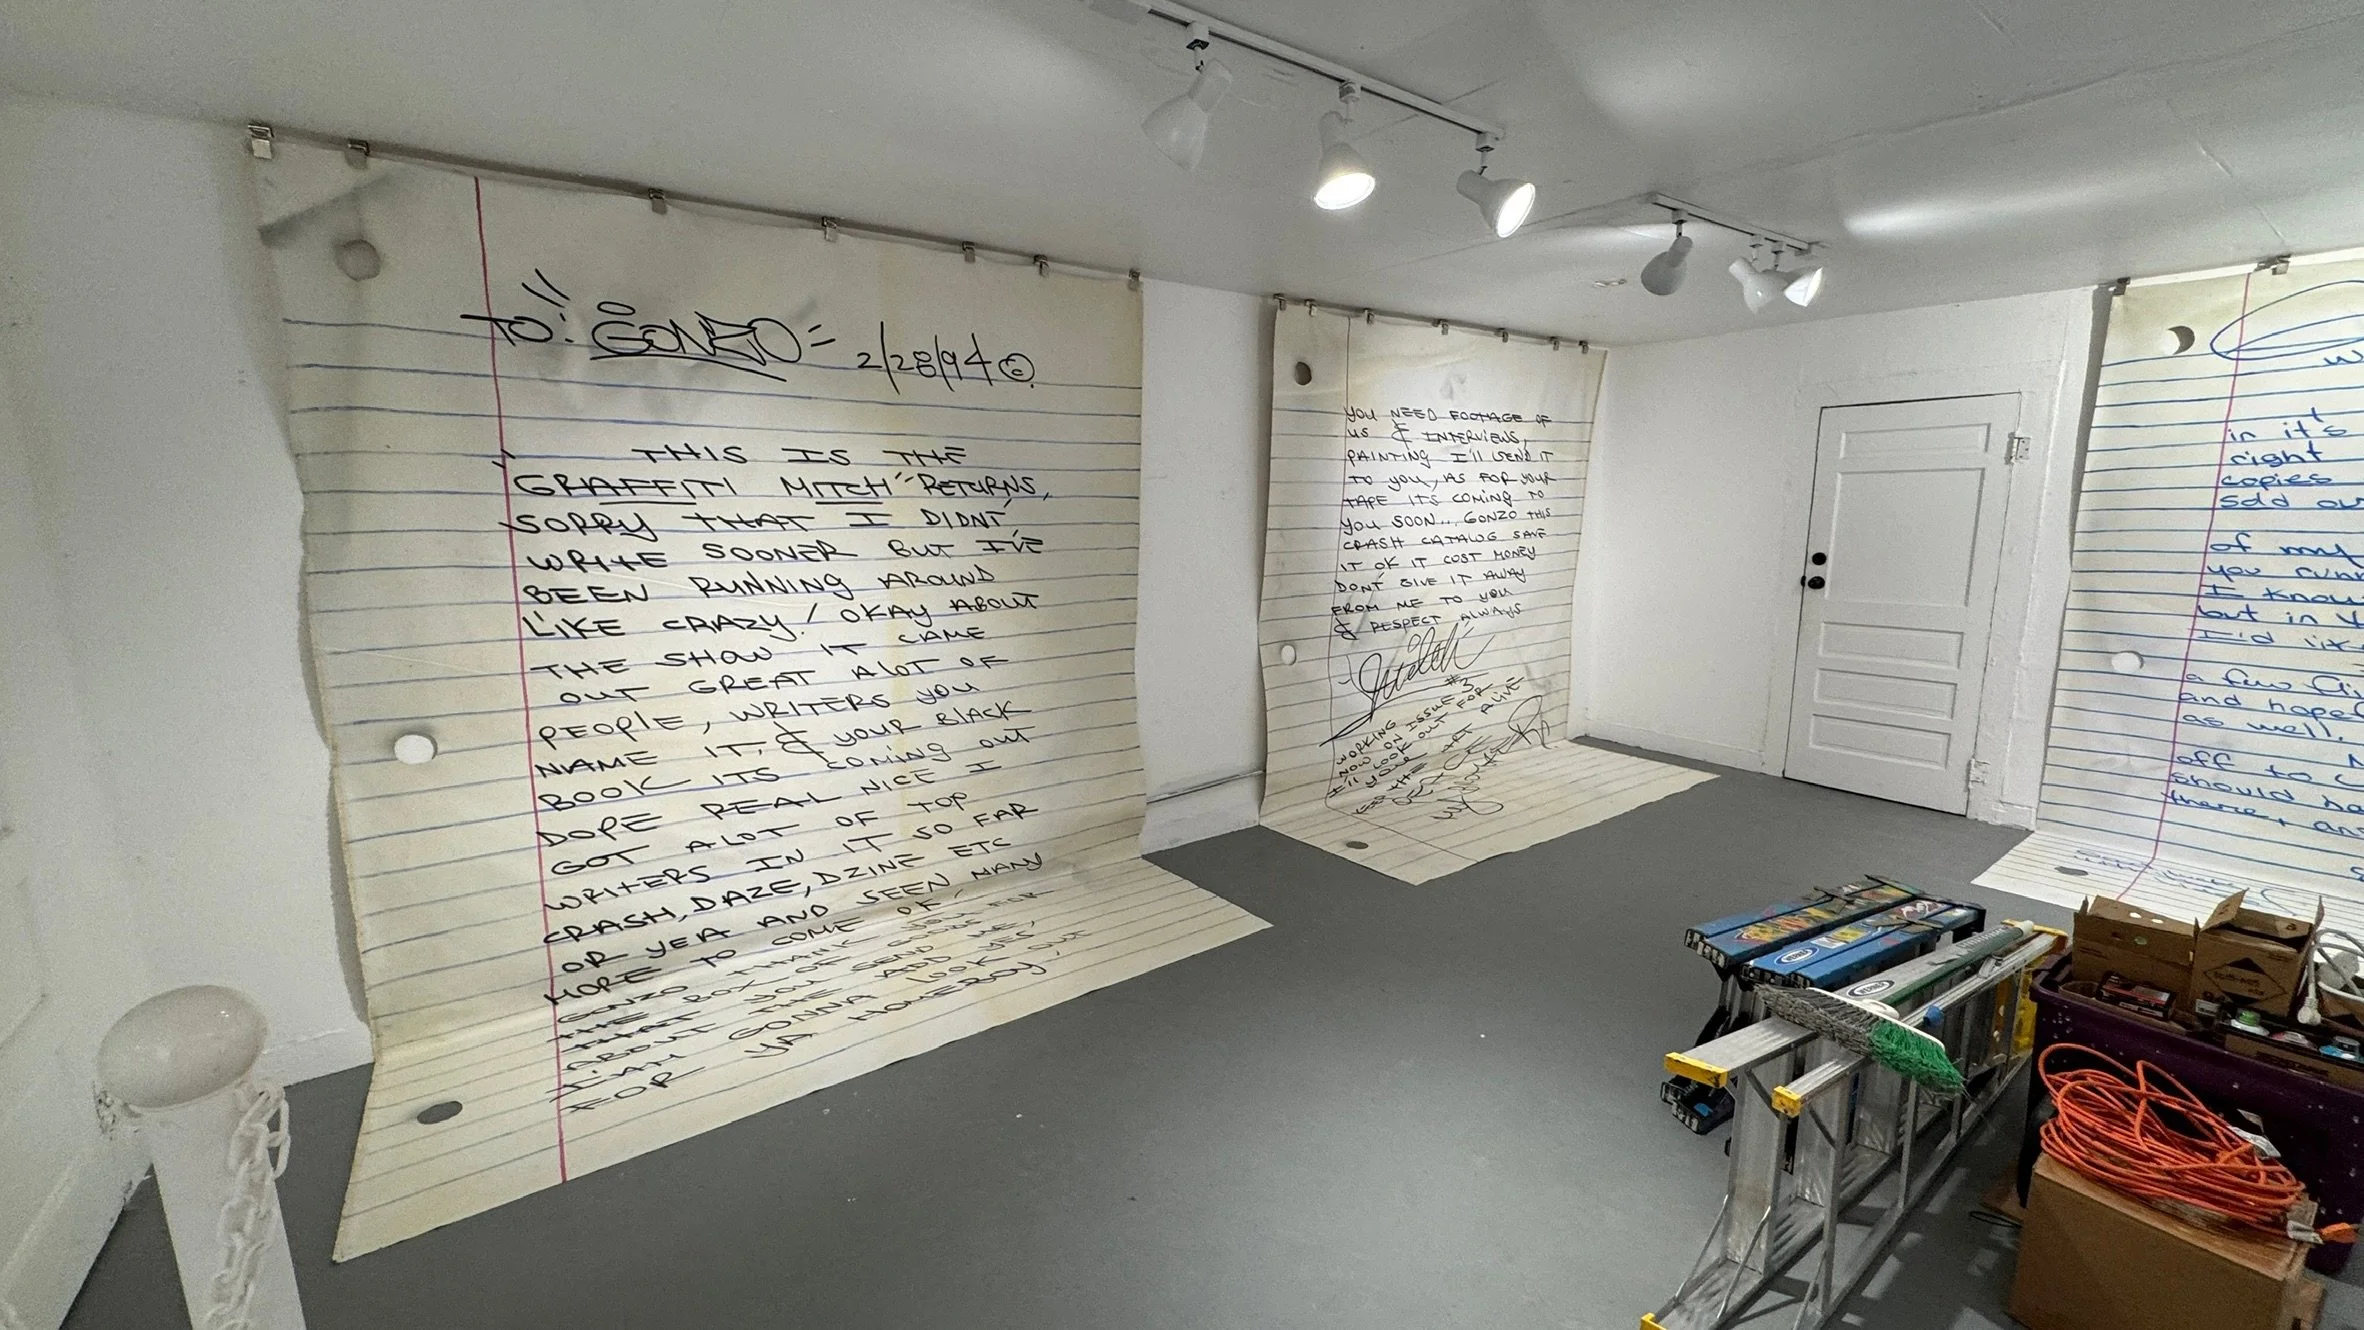 TO: GONZO = 2/28/94
THIS IS THE
GRAFFITI MITCH" RETURNS,
SORRY THAT I DIDNT
WRITE SOONER BUT I'VE
BEEN RUNNING AROUND
LIKE CRAZY! OKAY ABOUT
THE SHOW IT CAME
OUT GREAT ALOT OF
PEOPLE, WRITERS YOU
NAME IT, & YOUR BLACK
BOOK ITS COMING OUT
DOPE REAL NICE I
GOT ALOT OF TOP
WRITERS IN IT SO FAR
CRASH, DAZE, DZINE ETC
OR YEA AND SEEN, MANY
MORE TO COME OK,
GONZO THANK YOU FOR
THE BOX OF GOODS
THAT YOU SEND ME,
ABOUT THE ADD YES
I'AM GONNA LOOK OUT
FOR YA HOMEBOY,
YOU NEED FOOTAGE OF
US & INTERVIEWS,
PAINTING I'LL SEND IT
TO YOU, AS FOR YOUR
TAPE ITS COMING TO
YOU SOON... GONZO THIS
CRASH CATALOG SAVE
IT OK IT COST MONEY
DONT GIVE IT AWAY
FROM ME TO YOU
& RESPECT ALWAYS
Mitch
WORKING
NOW ON ISSUE #3
I'LL LOOK OUT FOR
YOUR ART
ALIVE
w
in it's
right
copies
sold ou
of my
you runn
I know
but in
I'd lik
a few fli
and hopef
as well.
off to
should ha
there, an